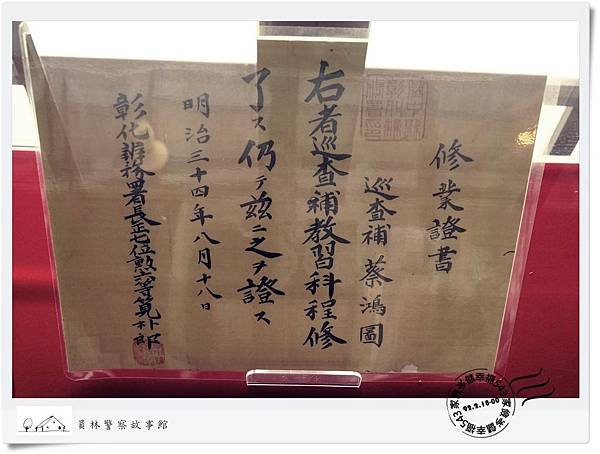 修業證書
巡查補 蔡鴻圖
右者巡查補教習科程修
了ス仍テ茲ニ之ヲ證ス
明治三十四年八月十八日
彰化辨務署長正七位勲六等筧朴郎
員林警察故事館